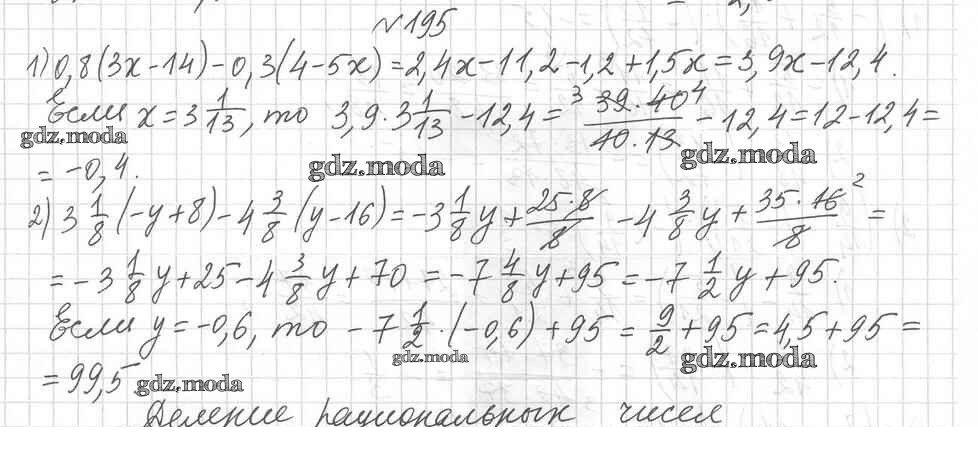 №195
1) 0,8(3x-14)-0,3(4-5x)=2,4x-11,2-1,2+1,5x=3,9x-12,4.
Если x=3 1/13, то 3,9·3 1/13 -12,4= 3 39·40 4/10·13 -12,4=12-12,4=
gdz.moda
gdz.moda
gdz.moda
= -0,4.
2) 3 1/8 (-y+8)-4 3/8 (y-16)=-3 1/8 y+ 25·8/8 -4 3/8 y+ 35·16 2/8 =
=-3 1/8 y+25-4 3/8 y+70 =-7 4/8 y+95=-7 1/2 y+95.
Если y=-0,6, то -7 1/2·(-0,6)+95= 9/2 +95=4,5+95=
gdz.moda
gdz.moda
=99,5
gdz.moda
Деление рациональных чисел